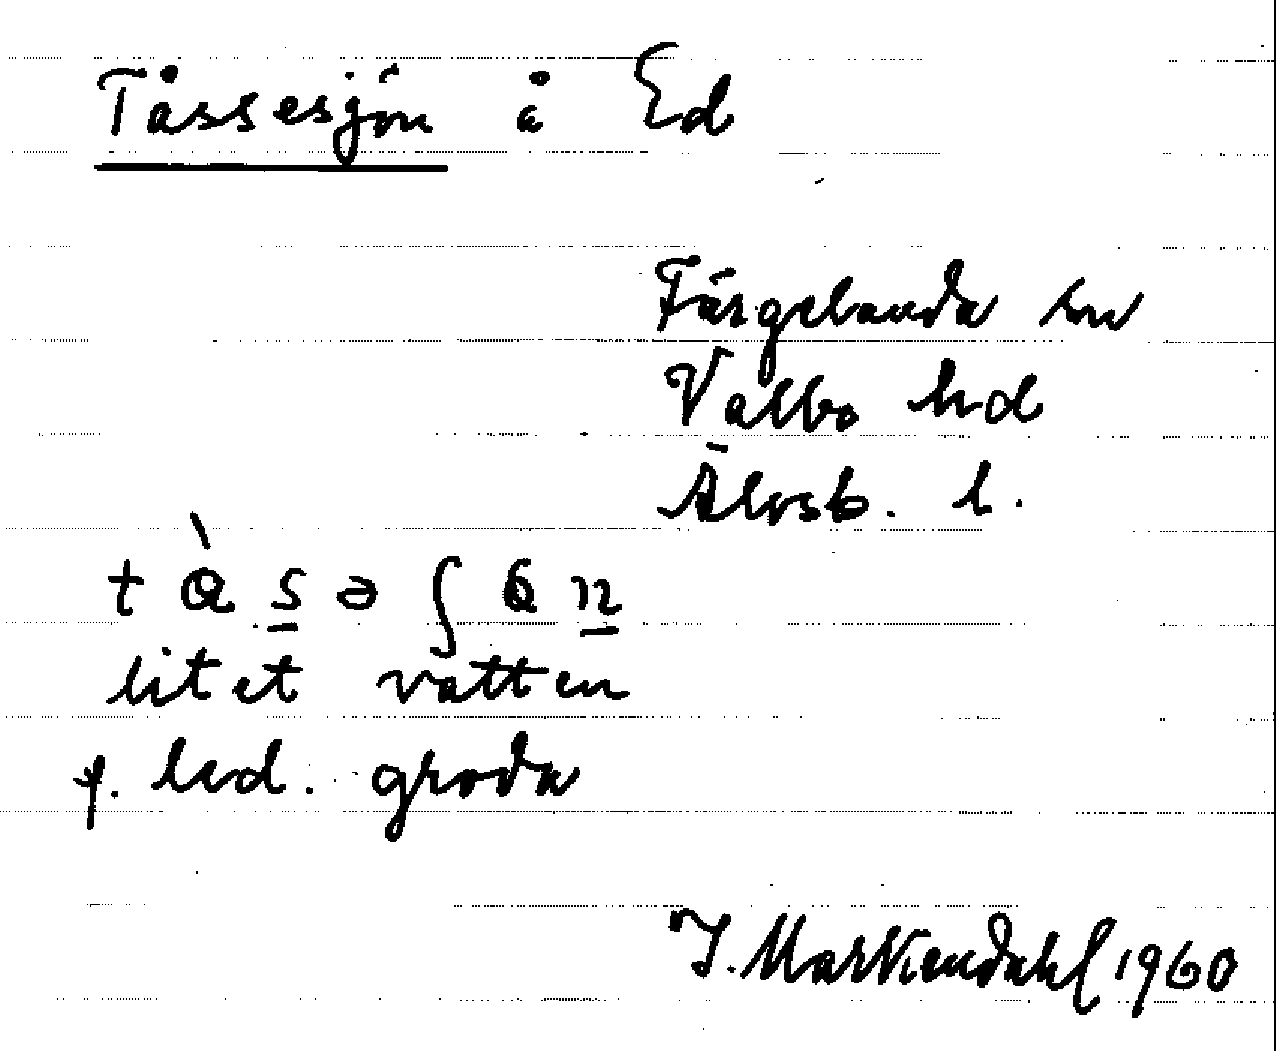 Tåssesjön å Ed
Färgelanda sn
Valbo hd
Älvsb. l.
litet vatten
f. led. groda
J. Markendahl 1960